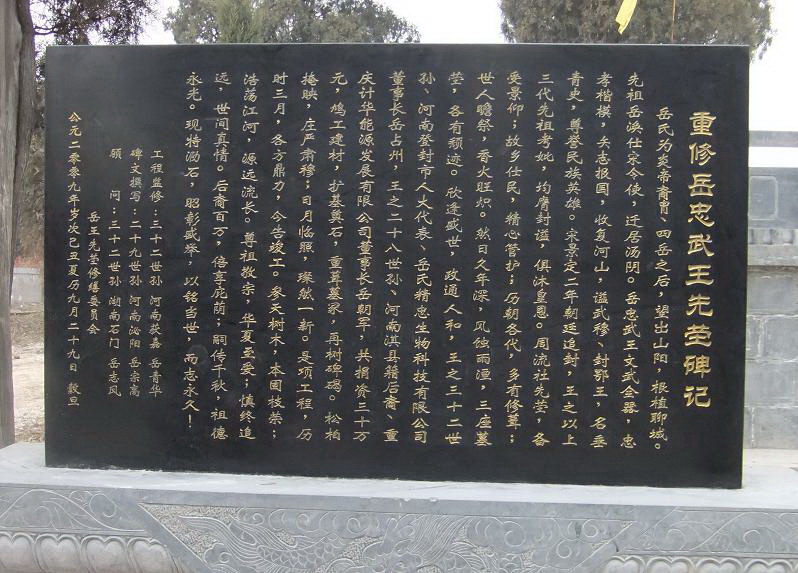 重修岳忠武王先茔碑记
岳氏为炎帝裔胄、四岳之后，望出山阳，根植聊城。
先祖岳涣仕宋令使，迁居汤阴。岳忠武王文武全器，忠
孝楷模，矢志报国，收复河山，谥武穆、封鄂王，名垂
青史，尊誉民族英雄。宋景定二年朝廷追封，王之以上
三代先祖考妣，均膺封谥，俱沐皇恩。周流社先茔，各
受景仰；故乡仕民，精心管护；历朝各代，多有修葺；
世人瞻祭，香火旺炽。然日久年深，风蚀雨湮，三座墓
茔，各有颓迹。欣逢盛世，政通人和，王之三十二世
孙、河南登封市人大代表、岳氏精忠生物科技有限公司
董事长岳占州，王之二十八世孙、河南淇县籍后裔、重
庆计华能源发展有限公司董事长岳朝军，共捐资三十万
元，鸠工建材，扩基奠石，重葺墓冢，再树碑碣。松柏
掩映，庄严肃穆；日月临照，璨然一新。是项工程，历
时三月，各方鼎力，今告竣工。参天树木，本固枝荣；
浩荡江河，源远流长。尊祖敬宗，华夏至爱；慎终追
远，世间真情。后裔百万，倍享庇荫；嗣传千秋，祖德
永光。现特泐石，昭彰盛举，以铭当世，而志永久！
工程监修：三十二世孙 河南获嘉 岳青华
碑文撰写：二十九世孙 河南泌阳 岳宗高
顾 问：三十二世孙 湖南石门 岳志风
岳王先茔修缮委员会
公元二零零九年岁次己丑夏历九月二十九日 穀旦